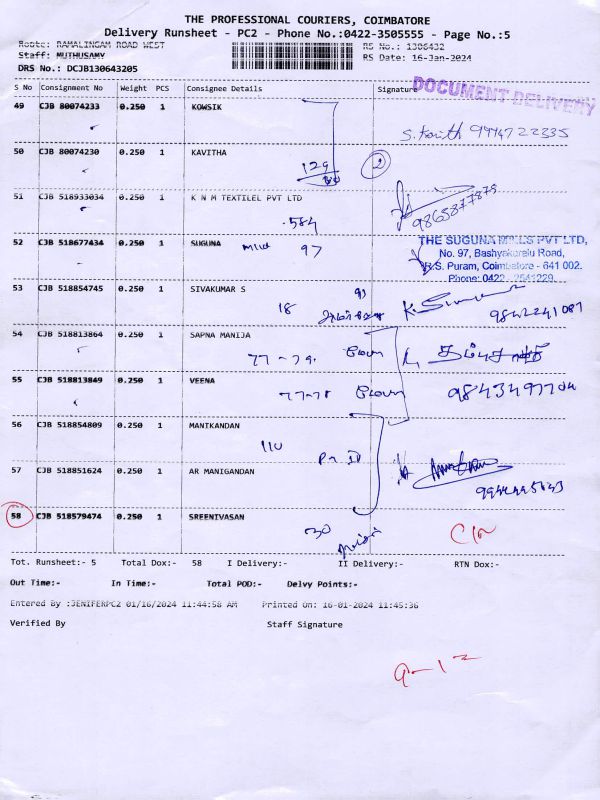 THE PROFESSIONAL COURIERS, COIMBATORE
Delivery Runsheet - PC2 - Phone No.:0422-3505555 - Page No.:5
Route: RAMALINGAM ROAD WEST RS No.: 1306432
Staff: MUTHUSAMY RS Date: 16-Jan-2024
DRS No.: DCJB130643205
S No Consignment No Weight PCS Consignee Details Signature
DOCUMENT DELIVERY
49 CJB 80074233 0.250 1 KOWSIK
9994722335
50 CJB 80074230 0.250 1 KAVITHA
129 2
51 CJB 518933034 0.250 1 K N M TEXTILEL PVT LTD
584 9865877875
52 CJB 518677434 0.250 1 SUGUNA Mill 97
THE SUGUNA MILLS PVT LTD,
No. 97, Bashyakaralu Road,
R.S. Puram, Coimbatore - 641 002.
Phone: 0422 - 2541229.
53 CJB 518854745 0.250 1 SIVAKUMAR S
18 9842241087
54 CJB 518813864 0.250 1 SAPNA MANIJA
77-79.
55 CJB 518813849 0.250 1 VEENA
77-78
56 CJB 518854809 0.250 1 MANIKANDAN
110
57 CJB 518851624 0.250 1 AR MANIGANDAN
58 CJB 518579474 0.250 1 SREENIVASAN
30
Tot. Runsheet:- 5 Total Dox:- 58 I Delivery:- II Delivery:- RTN Dox:-
Out Time:- In Time:- Total POD:- Delvy Points:-
Entered By :JENIFERPC2 01/16/2024 11:44:58 AM Printed On: 16-01-2024 11:45:36
Verified By Staff Signature
9-12